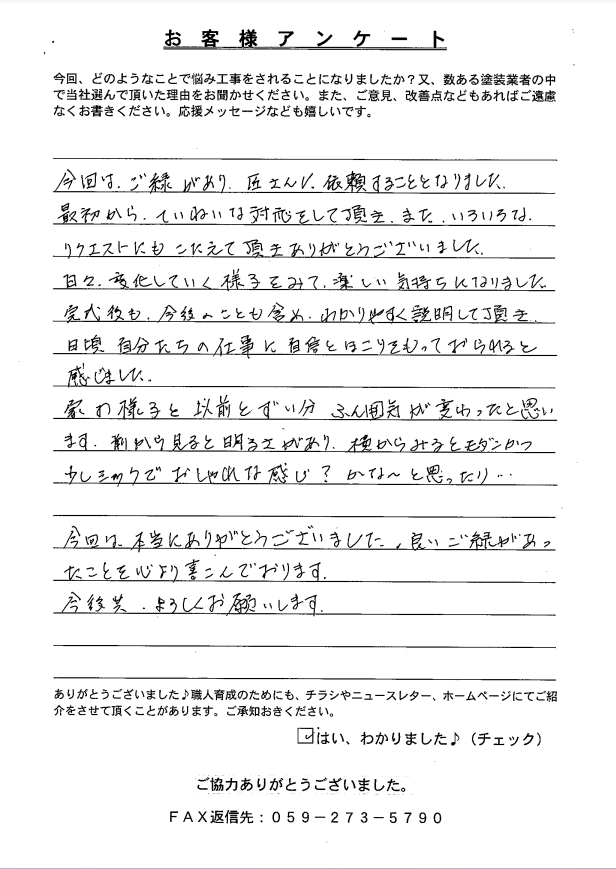 お客様アンケート
今回、どのようなことで悩み工事をされることになりましたか？又、数ある塗装業者の中
で当社選んで頂いた理由をお聞かせください。また、ご意見、改善点などもあればご遠慮
なくお書きください。応援メッセージなども嬉しいです。
今回は、ご縁があり、匠さんに依頼することとなりました。
最初から、ていねいな対応をして頂き、また、いろいろな、
リクエストにもこたえて頂きありがとうございました。
日々、変化していく様子をみて、楽しい気持ちになりました
完成後も、今後のことも含め、わかりやすく説明して頂き、
日頃自分たちの仕事に自信とほこりをもっておられると
感じました。
家の様子も以前とずい分ふん囲気が変わったと思い
ます。前から見ると明るさがあり、横からみるとモダンかつ
少しシックでおしゃれな感じ？かな～と思ったり…
今回は本当にありがとうございました。良いご縁があっ
たことを心より喜こんでおります。
今後共、よろしくお願いします。
ありがとうございました♪職人育成のためにも、チラシやニュースレター、ホームページにてご紹
介をさせて頂くことがあります。ご承知おきください。
☑はい、わかりました♪（チェック）
ご協力ありがとうございました。
ＦＡＸ返信先：０５９－２７３－５７９０